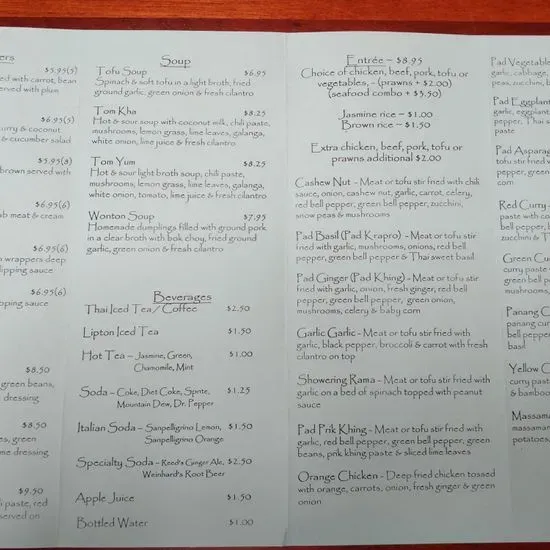 ers
$5.95(5)
ed with carrot, bean
served with plum
$6.95(5)
curry & coconut
& cucumber salad
$5.95(a)
brown served with
$6.95(6)
ab meat & cream
$6.95(6)
n wrappers deep
dipping sauce
$6.95(6)
pping sauce
$8.50
green beans,
dressing
$8.50
es, green
me dressing
$9.50
i paste, red
served on
Soup
Tofu Soup $6.95
Spinach & soft tofu in a light broth, fried
ground garlic, green onion & fresh cilantro
Tom Kha $8.25
Hot & sour soup with coconut milk, chili paste,
mushrooms, lemon grass, lime leaves, galanga,
white onion, lime juice & fresh cilantro
Tom Yum $8.25
Hot & sour light broth soup, chili paste,
mushrooms, lemon grass, lime leaves, galanga,
white onion, tomato, lime juice & fresh cilantro
Wonton Soup $7.95
Homemade dumplings filled with ground pork
in a clear broth with bok choy, fried ground
garlic, green onion & fresh cilantro
Beverages
Thai Iced Tea / Coffee $2.50
Lipton Iced Tea $1.50
Hot Tea ~ Jasmine, Green, $1.00
Chamomile, Mint
Soda ~ Coke, Diet Coke, Sprite, $1.25
Mountain Dew, Dr. Pepper
Italian Soda ~ Sanpelligrino Lemon, $1.50
Sanpelligrino Orange
Specialty Soda ~ Reed's Ginger Ale, $2.50
Weinhard's Root Beer
Apple Juice $1.50
Bottled Water $1.00
Entrée ~ $8.95
Choice of chicken, beef, pork, tofu or
vegetables, ~ (prawns + $2.00)
(seafood combo + $3.50)
Jasmine rice ~ $1.00
Brown rice ~ $1.50
Extra chicken, beef, pork, tofu or
prawns additional $2.00
Cashew Nut ~ Meat or tofu stir fried with chili
sauce, onion, cashew nut, garlic, carrot, celery,
red bell pepper, green bell pepper, zucchini,
snow peas & mushrooms
Pad Basil (Pad Krapro) ~ Meat or tofu stir
fried with garlic, mushrooms, onions, red bell
pepper, green bell pepper & Thai sweet basil
Pad Ginger (Pad Khing) ~ Meat or tofu stir
fried with garlic, onion, fresh ginger, red bell
pepper, green bell pepper, green onion,
mushrooms, celery & baby corn
Garlic Garlic ~ Meat or tofu stir fried with
garlic, black pepper, broccoli & carrot with fresh
cilantro on top
Showering Rama ~ Meat or tofu stir fried with
garlic on a bed of spinach topped with peanut
sauce
Pad Prik Khing ~ Meat or tofu stir fried with
garlic, red bell pepper, green bell pepper, green
beans, prik khing paste & sliced lime leaves
Orange Chicken ~ Deep fried chicken tossed
with orange, carrots, onion, fresh ginger & green
onion
Pad Vegetable
garlic, cabbage,
peas, zucchini, b
Pad Eggplant
garlic, eggplant
pepper, Thai s
paste
Pad Asparag
tofu stir fried
pepper, green
corn
Red Curry
paste with co
bell pepper,
zucchini & T
Green Cur
curry paste
pepper, gre
mushrooms,
Panang C
panang cur
bell pepper
basil
Yellow C
curry past
& bamboo
Massama
massaman
potatoes,